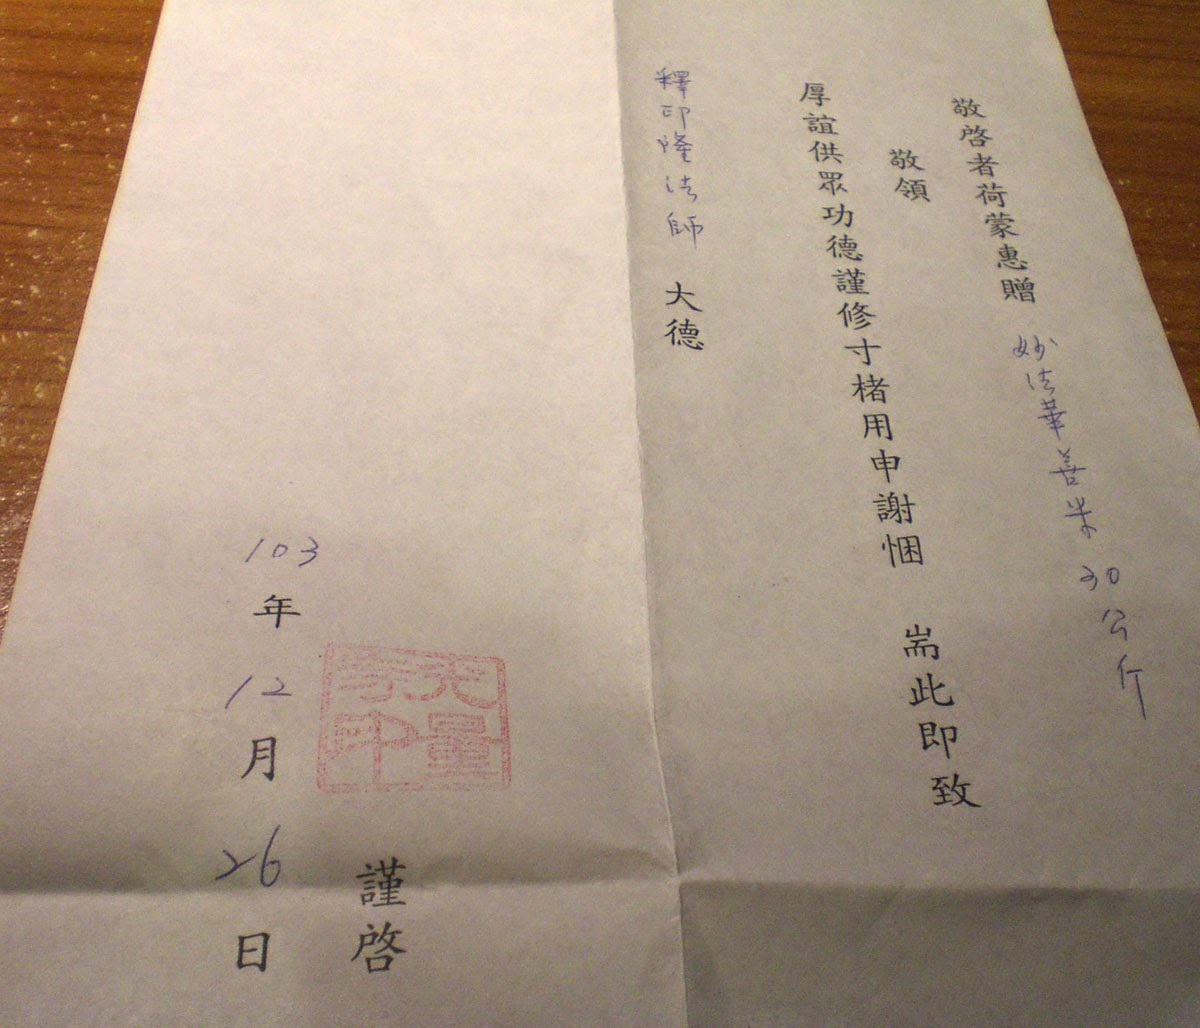 敬啓者荷蒙惠贈 妙法華善米 30公斤
敬領
厚誼供眾功德謹修寸楮用申謝悃 耑此即致
釋印隆法師 大德
謹啓
103年12月26日